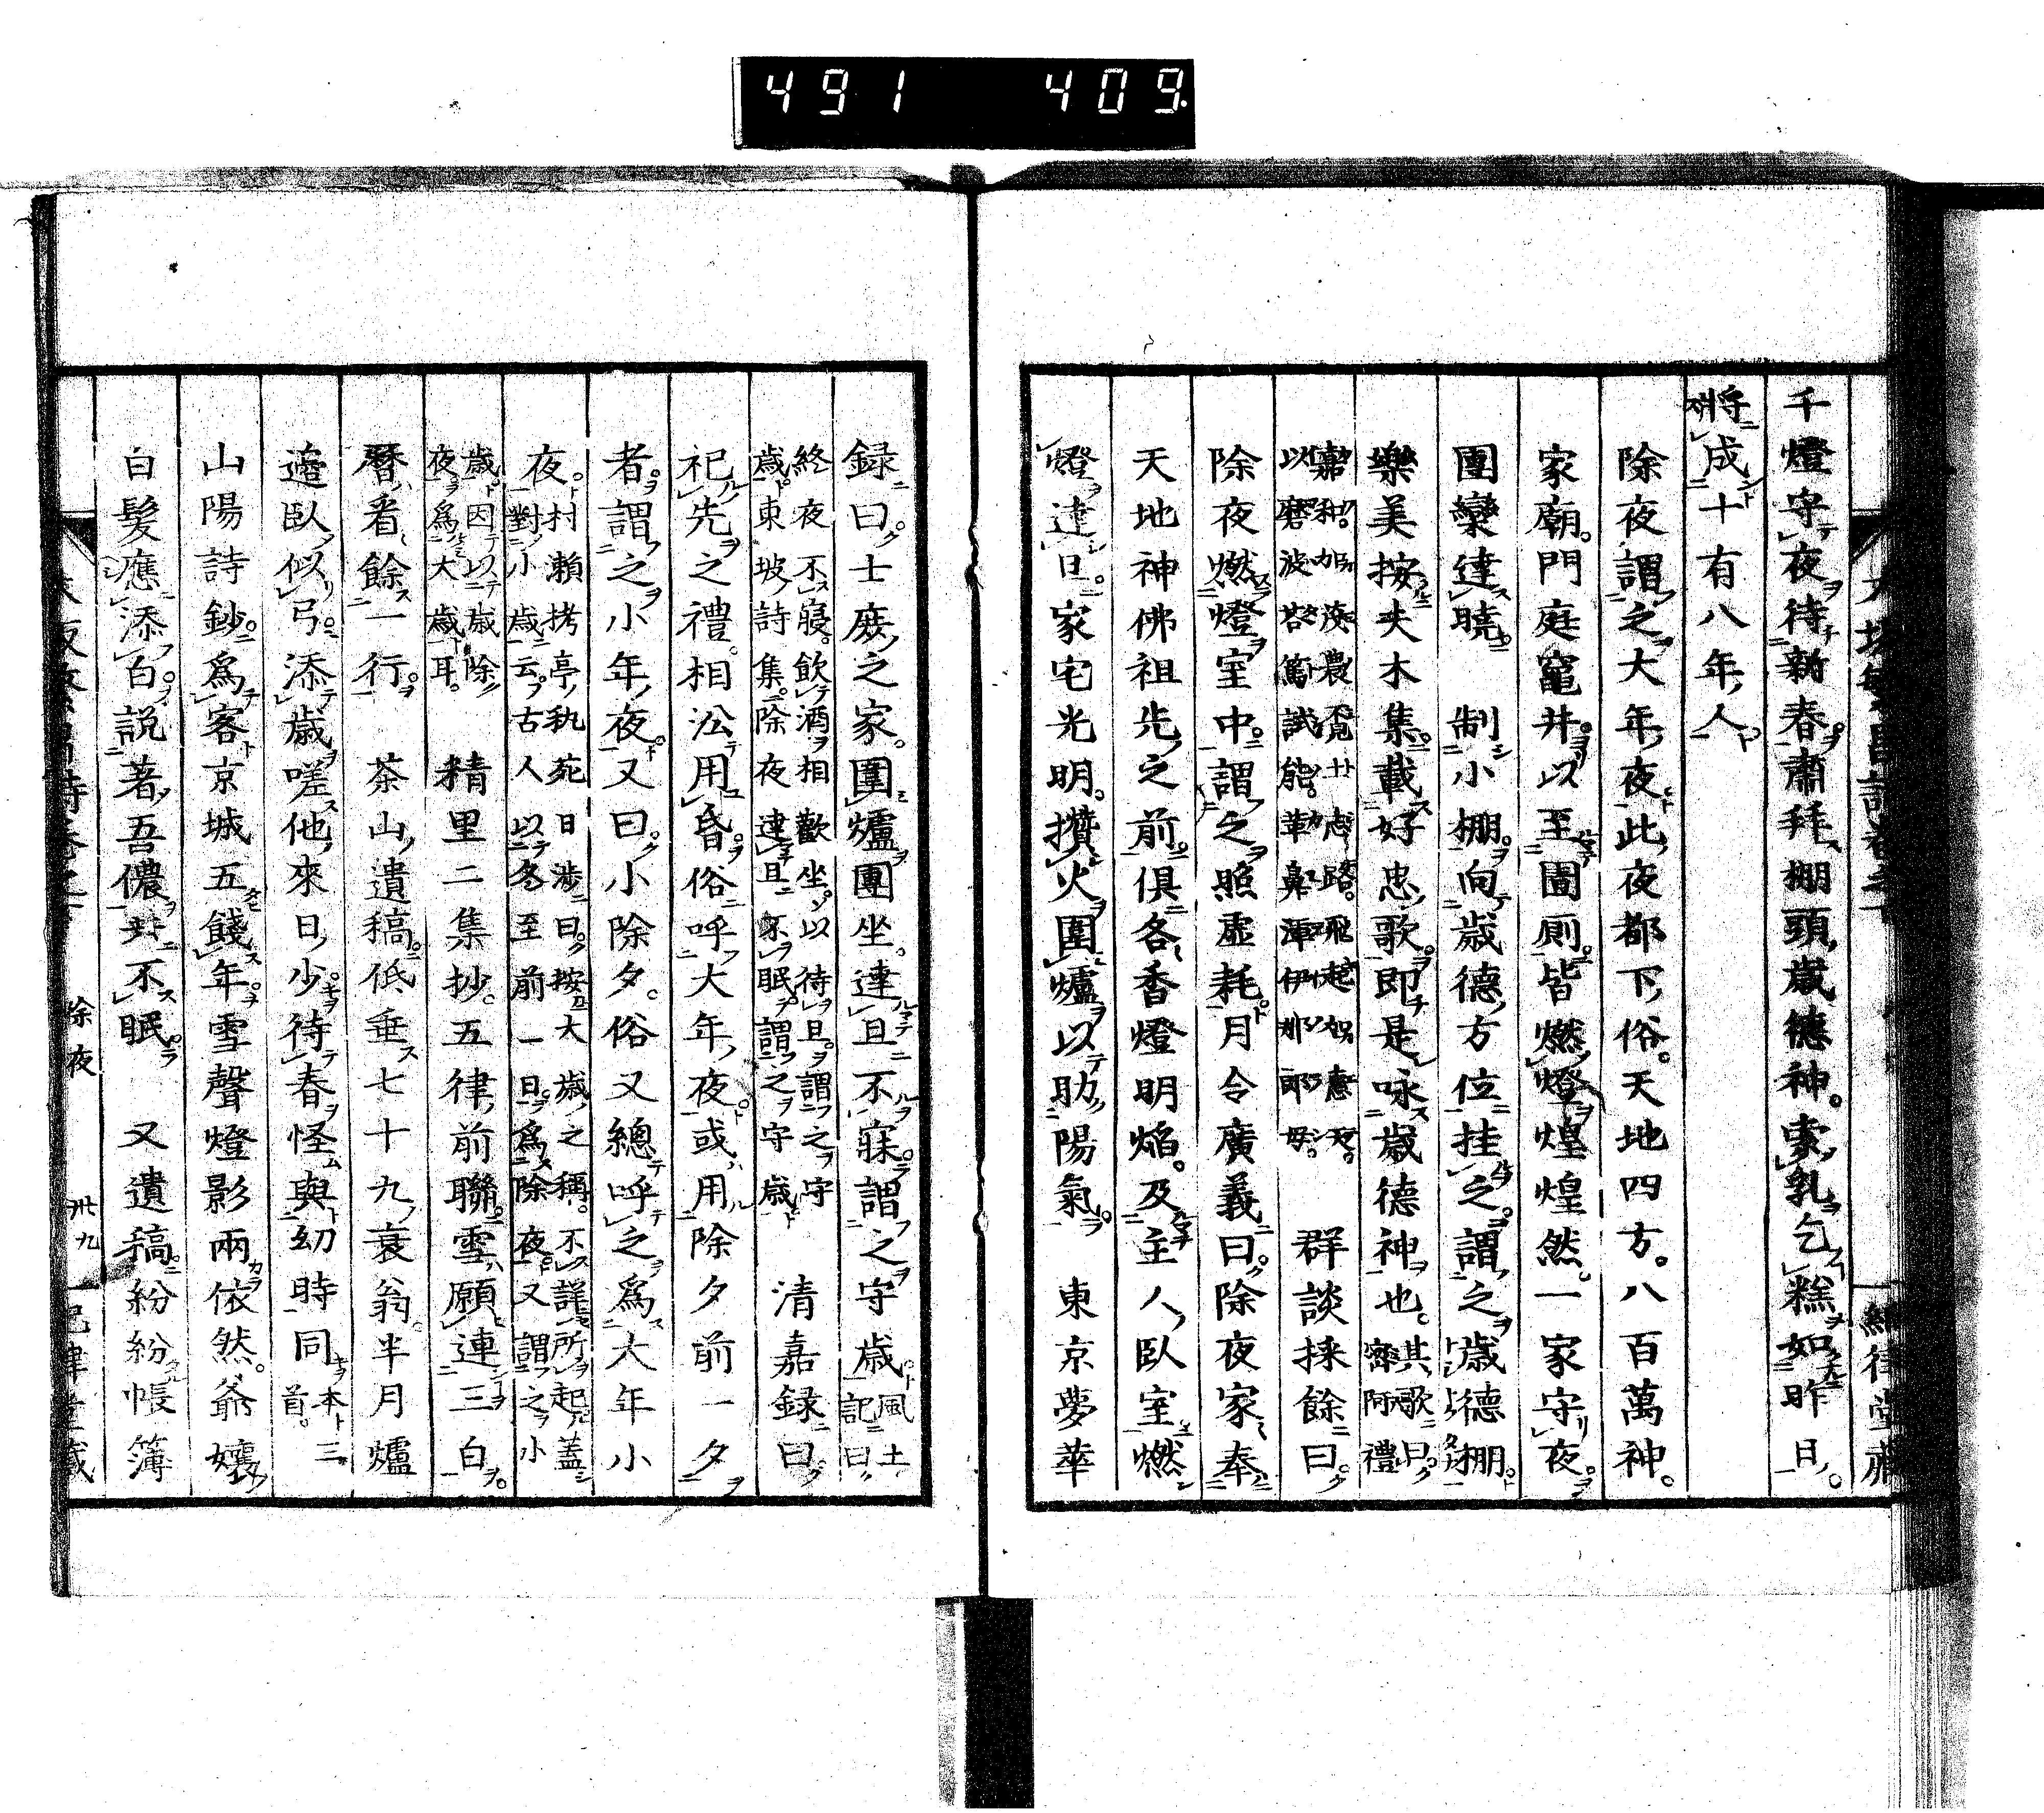 491 409
千燈守夜待新春肅拜棚頭歲德神索乳乞糕如昨日
將成十有八年人
除夜謂之大年夜此夜都下俗天地四方八百萬神
家廟門庭竈井以至圊廁皆燃燈煌煌然一家守夜
團欒達曉 制小棚向歲德方位挂之謂之歲德棚
樂美按夫木集載好忠歌即是咏歲德神也其歌曰
密阿禮
以磨波荅篤試能 群談採餘曰
除夜燃燈室中謂之照虛耗月令廣義曰除夜家奉
天地神佛祖先之前俱各香燈明焰及主人臥室燃
燈達旦家宅光明攢火圍爐以助陽氣 東京夢華
錄曰士庶之家圍爐團坐達旦不寐謂之守歲風土
記曰
終夜不寢飲酒相歡坐以待旦謂之守
歲東坡詩集除夜達旦不眠謂之守歲 清嘉錄曰
祀先之禮相沿用昏俗呼大年夜或用除夕前一夕
者謂之小年夜又曰小除夕俗又總呼之為大年小
夜村瀨栲亭秇苑日涉曰按大歲之稱不詳所起蓋
對小歲云古人以冬至前一日為除夜又謂之小
歲因以歲除
夜為大歲耳 精里二集抄五律前聯雪願連三白
曆看餘一行 茶山遺稿低垂七十九衰翁半月爐
邉臥似弓添歲嗟他來日少待春怪與幼時同本三
首
山陽詩鈔為客京城五餞年雪聲燈影兩依然爺孃
白髮應添白說著吾儂半不眠 又遺稿紛紛帳簿
除夜 卅九